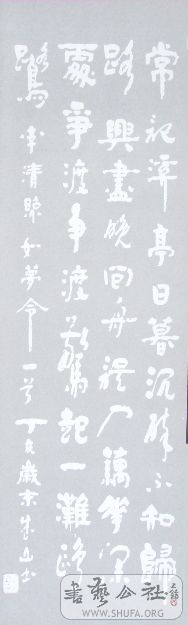 常記溪亭日暮沉醉不知歸
路興盡晚回舟誤入藕花深
處爭渡爭渡驚起一灘鷗
鷺 李清照如夢令一首 丁亥歲末
書藝公社
WWW.SHUFA.ORG